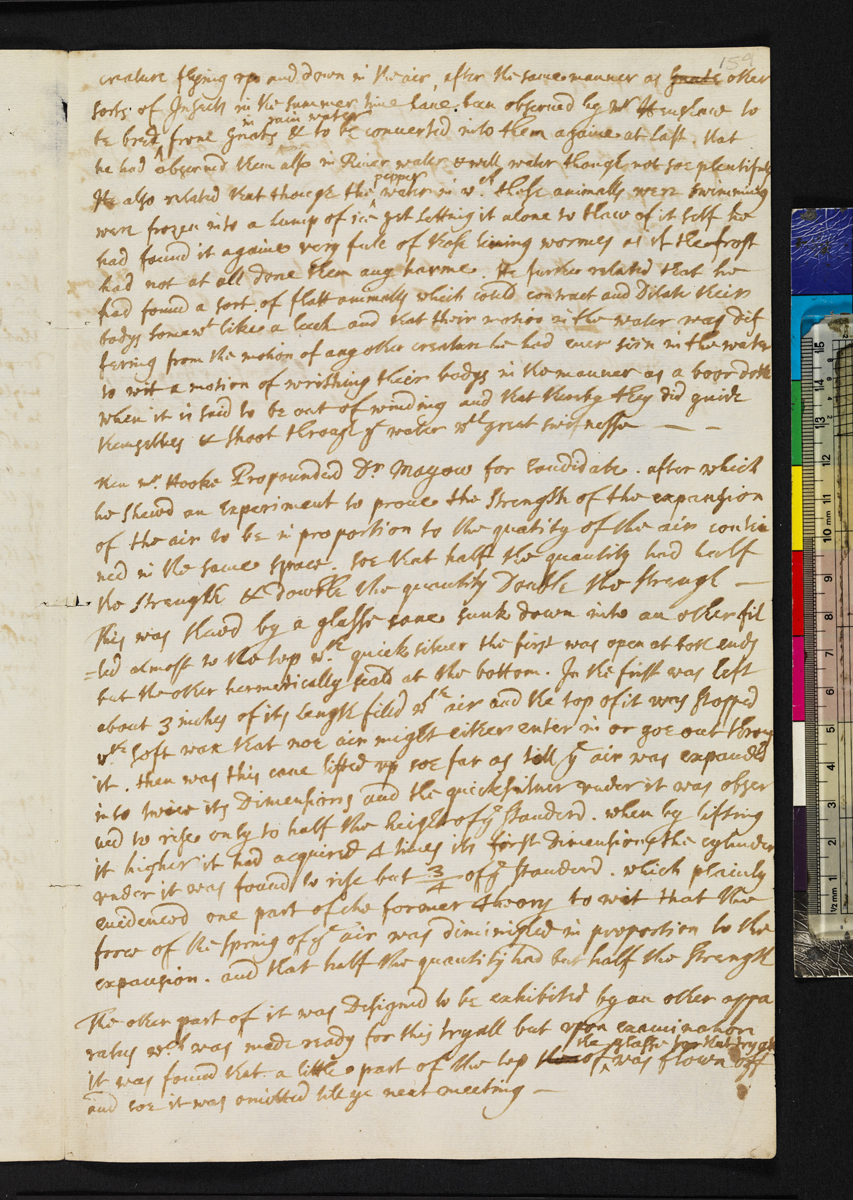 159
creature flying up and down in the air, after the same manner as gnats other
sorts of Insects in the summer time have been observed by mr Henshaw to
be bred from gnats & to be converted into them againe at last. that
in rain water
he had observed them also in River water & well water though not soe plentifull
He also related that though the pepper water in wch those animalls were swimming
were frozen into a lump of ice yet letting it alone to thaw of it self he
had found it againe very full of these living wormes as if the frost
had not at all done them any harme. He further related that he
had found a sort of flatt animalls which could contract and Dilate their
bodys somewt like a leech and that their motion in the water was dif
fering from the motion of any other creature he had ever seen in the water
to wit a motion of writhing their bodys in the manner as a boor doth
when it is said to be out of winding and that thereby they did guide
themselves & shoot through ye water wth great swiftnesse — —
then mr. Hooke Propounded Dr Mayow for Candidate. after which
he shewd an Experiment to prove the strength of the expansion
of the air to be in proportion to the quatity of the air contei
ned in the same space. soe that half the quantity had half
the strength & double the quantity Double the strengh —
This was shewd by a glasse cane sunk down into an other fil
=led almost to the top wth quick silver the first was open at both ends
but the other hermetically seald at the bottom. In the first was left
about 3 inches of its length filed wth air and the top of it was stopped
wth soft wax that noe air might either enter in or goe out throug
it. then was this cane lifted up soe far as till ye air was expanded
into twice its Dimensions and the quicksilver under it was obser
ved to rise only to half the height of ye standerd. when by lifting
it higher it had acquired 4 times its first Dimensions the cylinder
under it was found to rise but 3/4 of ye standerd. which plainly
evidenced one part of the former theory to wit that the
force of the spring of ye air was diminished in proportion to the
expansion. and that half the quantity had but half the strength
The other part of it was Designed to be exhibited by an other appa
ratus wch was made ready for this tryall but upon examination
it was found that a little part of the top of the glasse for that tryall was flown off
and soe it was omitted till ye next meeting —